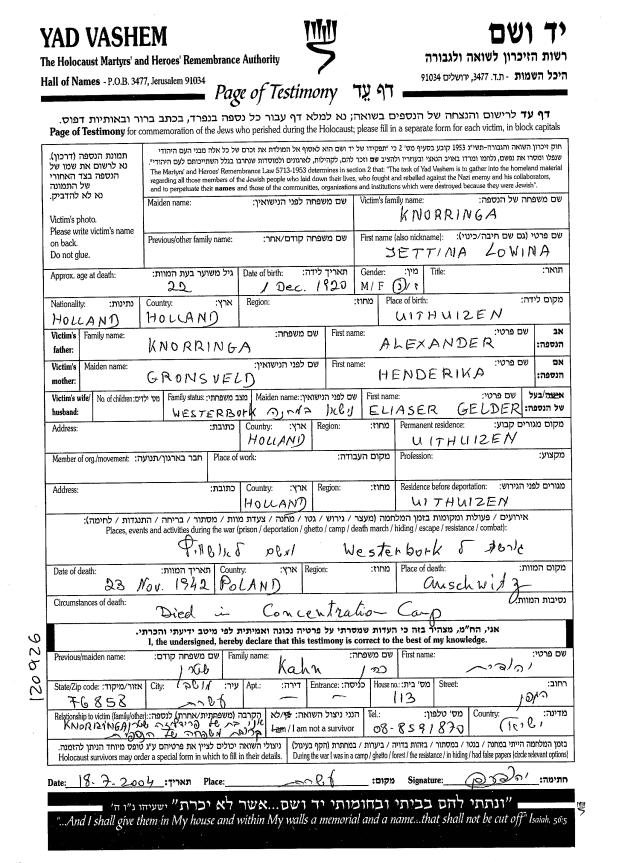 YAD VASHEM
יד ושם
The Holocaust Martyrs' and Heroes' Remembrance Authority
רשות הזיכרון לשואה ולגבורה
Hall of Names - P.O.B. 3477, Jerusalem 91034
היכל השמות - ת.ד. 3477, ירושלים 91034
Page of Testimony דף עֵד
דף עד לרישום והנצחה של הנספים בשואה; נא למלא דף עבור כל נספה בנפרד, בכתב ברור ובאותיות דפוס.
Page of Testimony for commemoration of the Jews who perished during the Holocaust; please fill in a separate form for each victim, in block capitals
תמונת הנספה (דרכון).
נא לרשום את שמו של
הנספה בצד האחורי
של התמונה
נא לא להדביק.
Victim's photo.
Please write victim's name
on back.
Do not glue.
The Martyrs' and Heroes' Remembrance Law 5713-1953 determines in section 2 that: "The task of Yad Vashem is to gather into the homeland material
regarding all those members of the Jewish people who laid down their lives, who fought and rebelled against the Nazi enemy and his collaborators,
and to perpetuate their names and those of the communities, organizations and institutions which were destroyed because they were Jewish".
Maiden name: שם משפחה לפני הנישואין:
Victim's family name: שם משפחה של הנספה:
KNORRINGA
Previous/other family name: שם משפחה קודם/אחר:
First name (also nickname): שם פרטי (גם שם חיבה/כינוי):
JETTINA LOWINA
Approx. age at death: גיל משוער בעת המוות:
22
Date of birth: תאריך לידה:
1 Dec. 1920
Gender: מין:
M / F ז / נ
Title: תואר:
Nationality: נתינות:
HOLLAND
Country: ארץ:
HOLLAND
Region: מחוז:
Place of birth: מקום לידה:
UITHUIZEN
Victim's father:
Family name: שם משפחה:
KNORRINGA
First name: שם פרטי:
ALEXANDER
אב הנספה:
Victim's mother:
Maiden name: שם לפני הנישואין:
GRONSVELD
First name: שם פרטי:
HENDERIKA
אם הנספה:
Victim's wife/ husband:
No. of children: מס' ילדים:
Family status: מצב משפחתי:
Maiden name: שם לפני הנישואין:
נישאו במחנה WESTERBORK
First name: שם פרטי:
ELIASER GELDER
אישה/בעל של הנספה:
Address: כתובת:
Country: ארץ:
HOLLAND
Region: מחוז:
Permanent residence: מקום מגורים קבוע:
UITHUIZEN
Member of org./movement: חבר בארגון/תנועה:
Place of work: מקום העבודה:
Profession: מקצוע:
Address: כתובת:
Country: ארץ:
HOLLAND
Region: מחוז:
Residence before deportation: מגורים לפני הגירוש:
UITHUIZEN
אירועים / פעולות ומקומות בזמן המלחמה (מעצר / גירוש / גטו / מחנה / צעדת מוות / מסתור / בריחה / התנגדות / לחימה):
Places, events and activities during the war (prison / deportation / ghetto / camp / death march / hiding / escape / resistance / combat):
גורשה ל Westerbork ומשם לאושוויץ
Date of death: תאריך המוות:
23 Nov. 1942
Country: ארץ:
POLAND
Region: מחוז:
Place of death: מקום המוות:
Auschwitz
Circumstances of death: נסיבות המוות:
Died in Concentration Camp
אני, הח"מ, מצהיר בזה כי העדות שמסרתי על פרטיה נכונה ואמיתית לפי מיטב ידיעתי והכרתי.
I, the undersigned, hereby declare that this testimony is correct to the best of my knowledge.
Previous/maiden name: שם משפחה קודם:
Family name: שם משפחה:
Kahn כהן
First name: שם פרטי:
יהודית
State/Zip code: אזור/מיקוד:
76858
City: עיר:
Apt.: דירה:
Entrance: כניסה:
House no.: מס' בית:
113
Street: רחוב:
הגפן
Relationship to victim (family/other): הקרבה (משפחתית/אחרת) לנספה:
KNORRINGA
הנני ניצול השואה: כן/לא
I am / I am not a survivor
Tel.: מס' טלפון:
08-8591870
Country: מדינה:
ישראל
ניצולי השואה יכולים לציין את פרטיהם ע"ג טופס מיוחד הניתן להזמנה.
Holocaust survivors may order a special form in which to fill in their details.
בזמן המלחמה הייתי במחנה / בגטו / במסתור / בזהות בדויה / ביערות / במחתרת (הקף בעיגול)
During the war I was in a camp / ghetto / forest / the resistance / in hiding / had false papers (circle relevant options)
Date: 18-7-2004 תאריך: Place: מקום: Signature: חתימה:
"ונתתי להם בביתי ובחומותי יד ושם...אשר לא יכרת" ישעיהו נ"ו ה'
"...And I shall give them in My house and within My walls a memorial and a name...that shall not be cut off" Isaiah, 56:5
120926